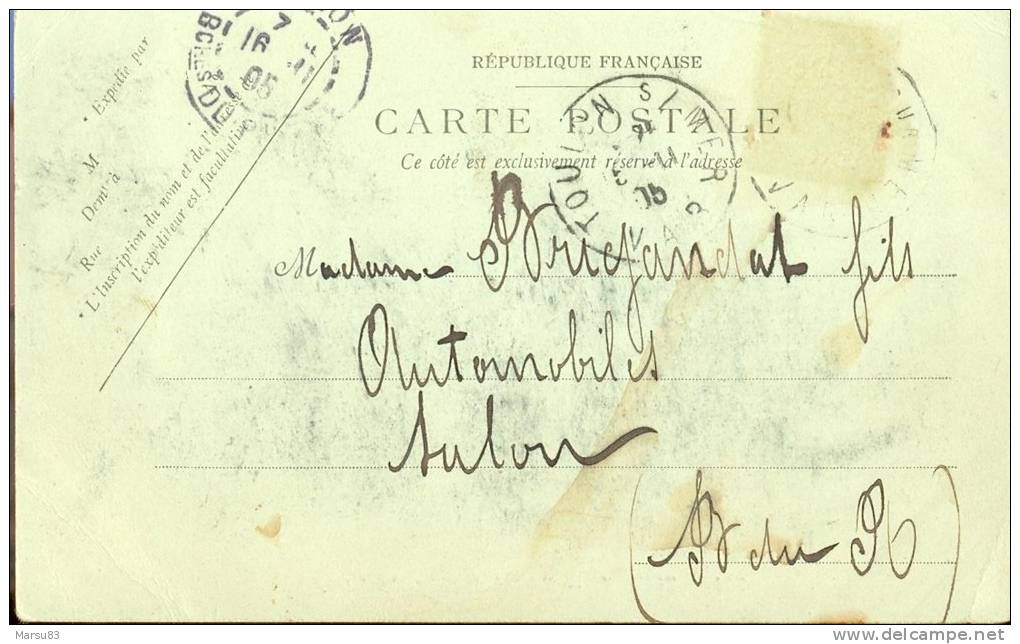 RÉPUBLIQUE FRANÇAISE
CARTE POSTALE
Ce côté est exclusivement réservé à l'adresse
Expédié par
M
Demt à
Rue
• L'Inscription du nom et de l'adresse de
l'expéditeur est facultative.
TOULON S/MER
VAR
16
05
Madame fils
Automobiles
Salon
(B du R)
Marsu83
www.delcampe.net